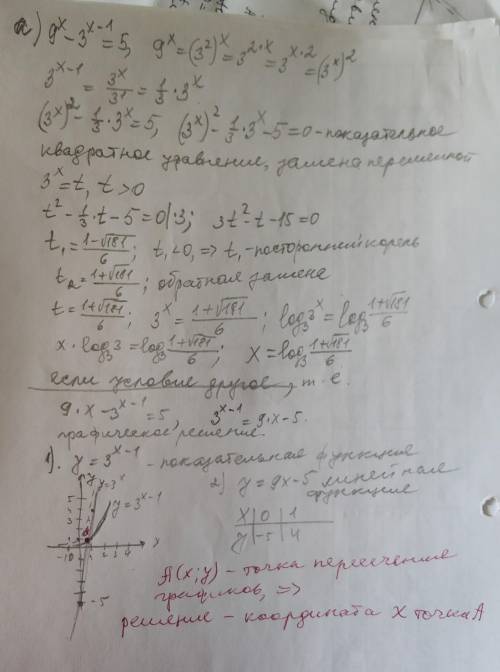 а) 9^x - 3^(x-1) = 5, 9^x = (3^2)^x = 3^(2·x) = 3^(x·2) = (3^x)^2
3^(x-1) = 3^x/3^1 = 1/3 · 3^x
(3^x)^2 - 1/3 · 3^x = 5, (3^x)^2 - 1/3 · 3^x - 5 = 0 - показательное
квадратное уравнение, замена переменной
3^x = t, t > 0
t^2 - 1/3 · t - 5 = 0 | ·3; 3t^2 - t - 15 = 0
t₁ = (1-√181)/6; t₁ < 0, => t₁ - посторонний корень
t₂ = (1+√181)/6; обратная замена
t = (1+√181)/6; 3^x = (1+√181)/6; log₃3^x = log₃ (1+√181)/6
x · log₃3 = log₃ (1+√181)/6; x = log₃ (1+√181)/6
если условие другое, т.е.
9·x - 3^(x-1) = 5 3^(x-1) = 9·x - 5.
графическое решение.
1). y = 3^(x-1) - показательная функция
2) y = 9x - 5 линейная
функция
x 0 1
y -5 4
y
y=3^x
y=3^(x-1)
5
-1 0 1 2 3 4
x
-5
A(x;y) - точка пересечение
графиков, =>
решение - координата x точки A